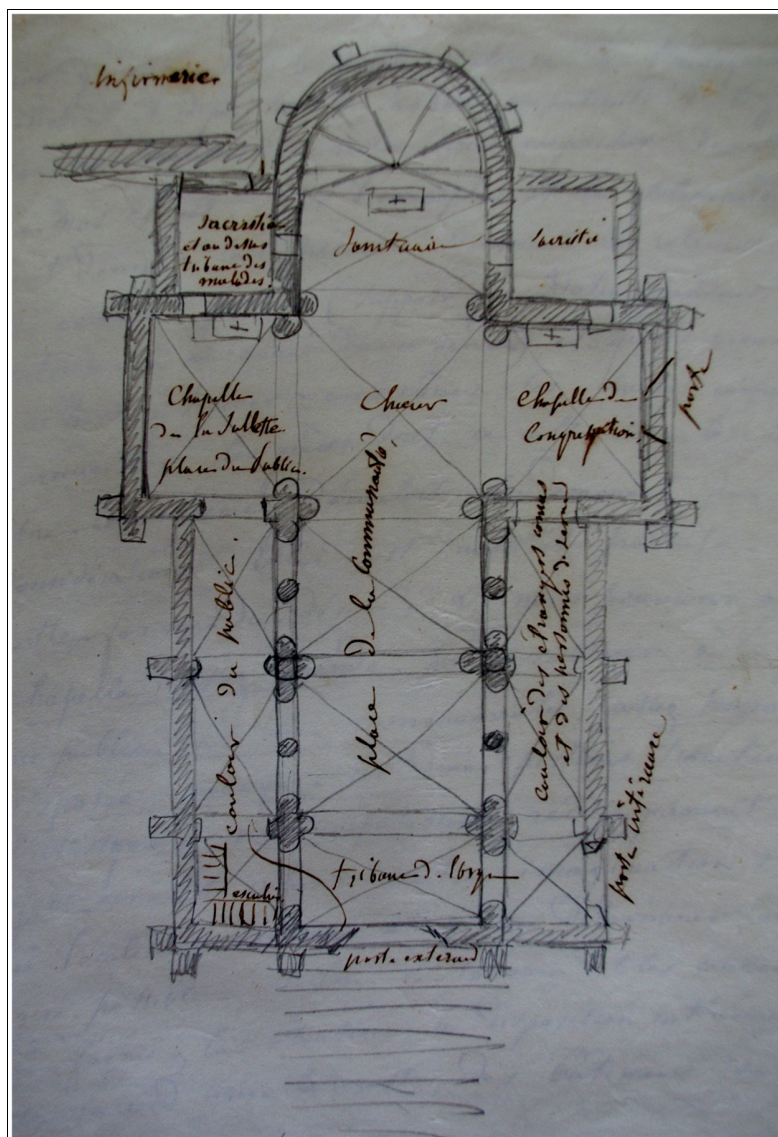 infirmerie
Sacristie
et au dessus
tribune des
malades.
Sanctuaire
Sacristie
Chapelle
de la Sallette
place du public.
Choeur
Chapelle de
Congrégation.
porte
couloir du public.
place de la Communauté.
couloir des étrangers
et des personnes de
porte intérieure
escalier
tribune de l'orgue
porte externe